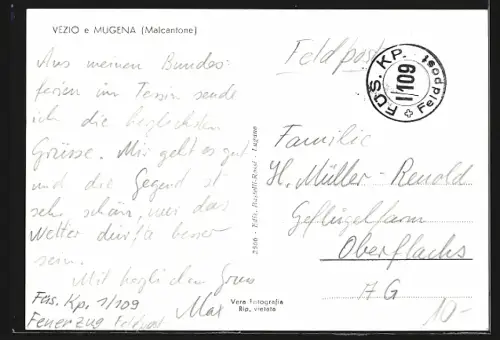 VEZIO e MUGENA (Malcantone)
Aus meinen Bundes-
ferien im Tessin sende
ich die herzlichsten
Grüsse. Mir geht es gut
und die Gegend ist
sehr schön, nur das
Wetter dürfte besser
sein.
Mit herzlichem Gruss
Max
Füs. Kp. 1/109
Feuerzug Feldpost
2506 - Ediz. Rastelli-Rossi - Lugano
Vera Fotografia
Rip. vietata
Feldpost
FÜS. KP.
I/109
Feldpost
Familie
H. Müller-Renold
Geflügelfarm
Oberflachs
AG
10.-